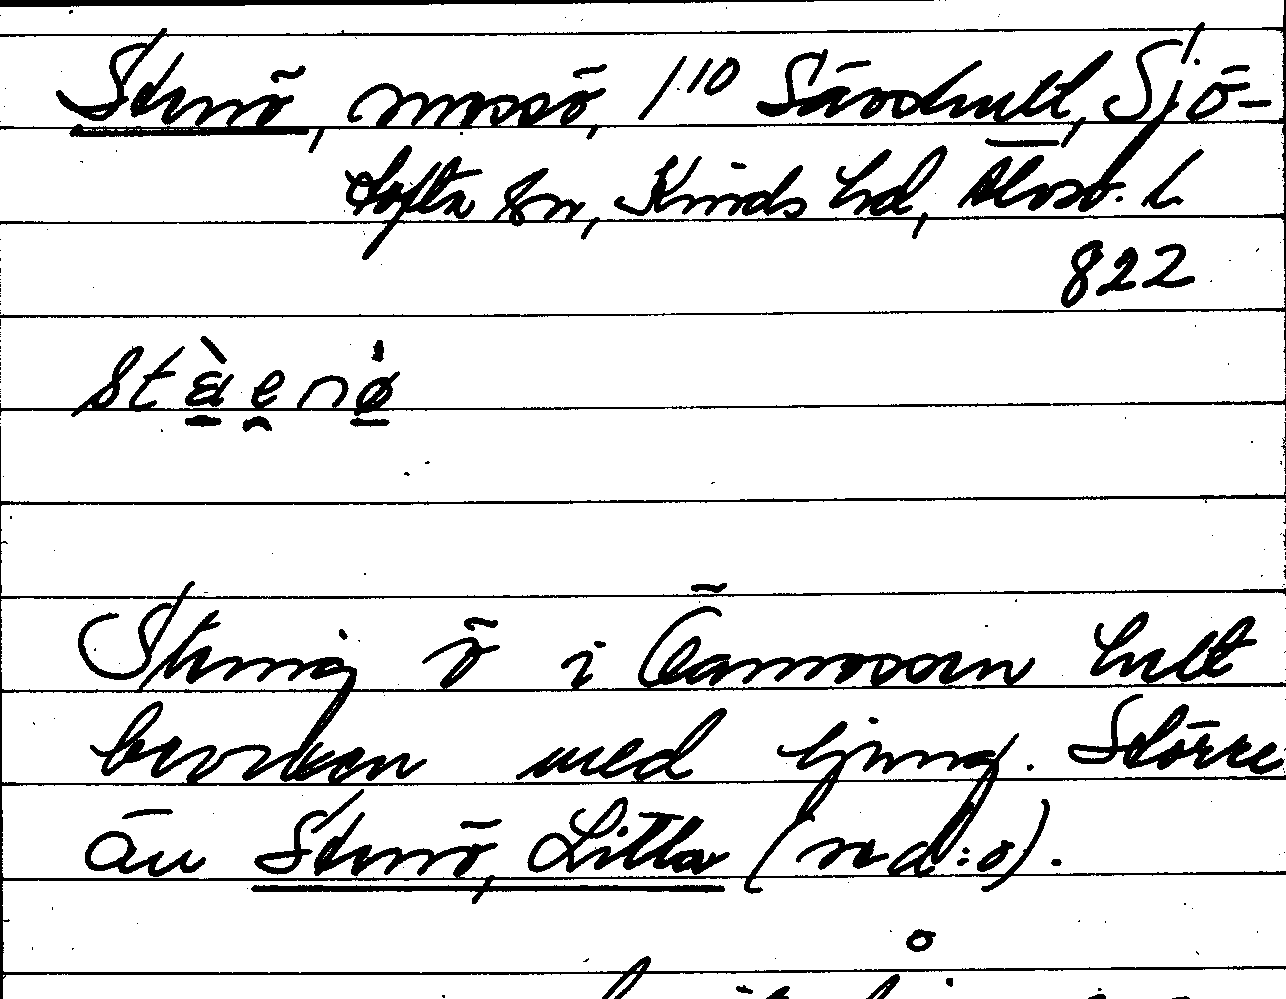 Stenö, mossö, 1/10 Sävshult, Sjö-
tofta sn, Kinds hd, Älvsb. l
822
stæ̀enø
Stenig ö i Öamossen helt
bevuxen med ljung. Större
än Stenö, Lilla (n a:o).